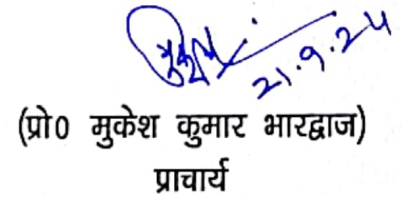 21.9.24
(प्रो0 मुकेश कुमार भारद्वाज)
प्राचार्य